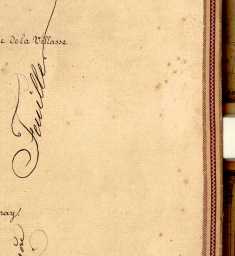 e de la Villasse
Feuille
ray)